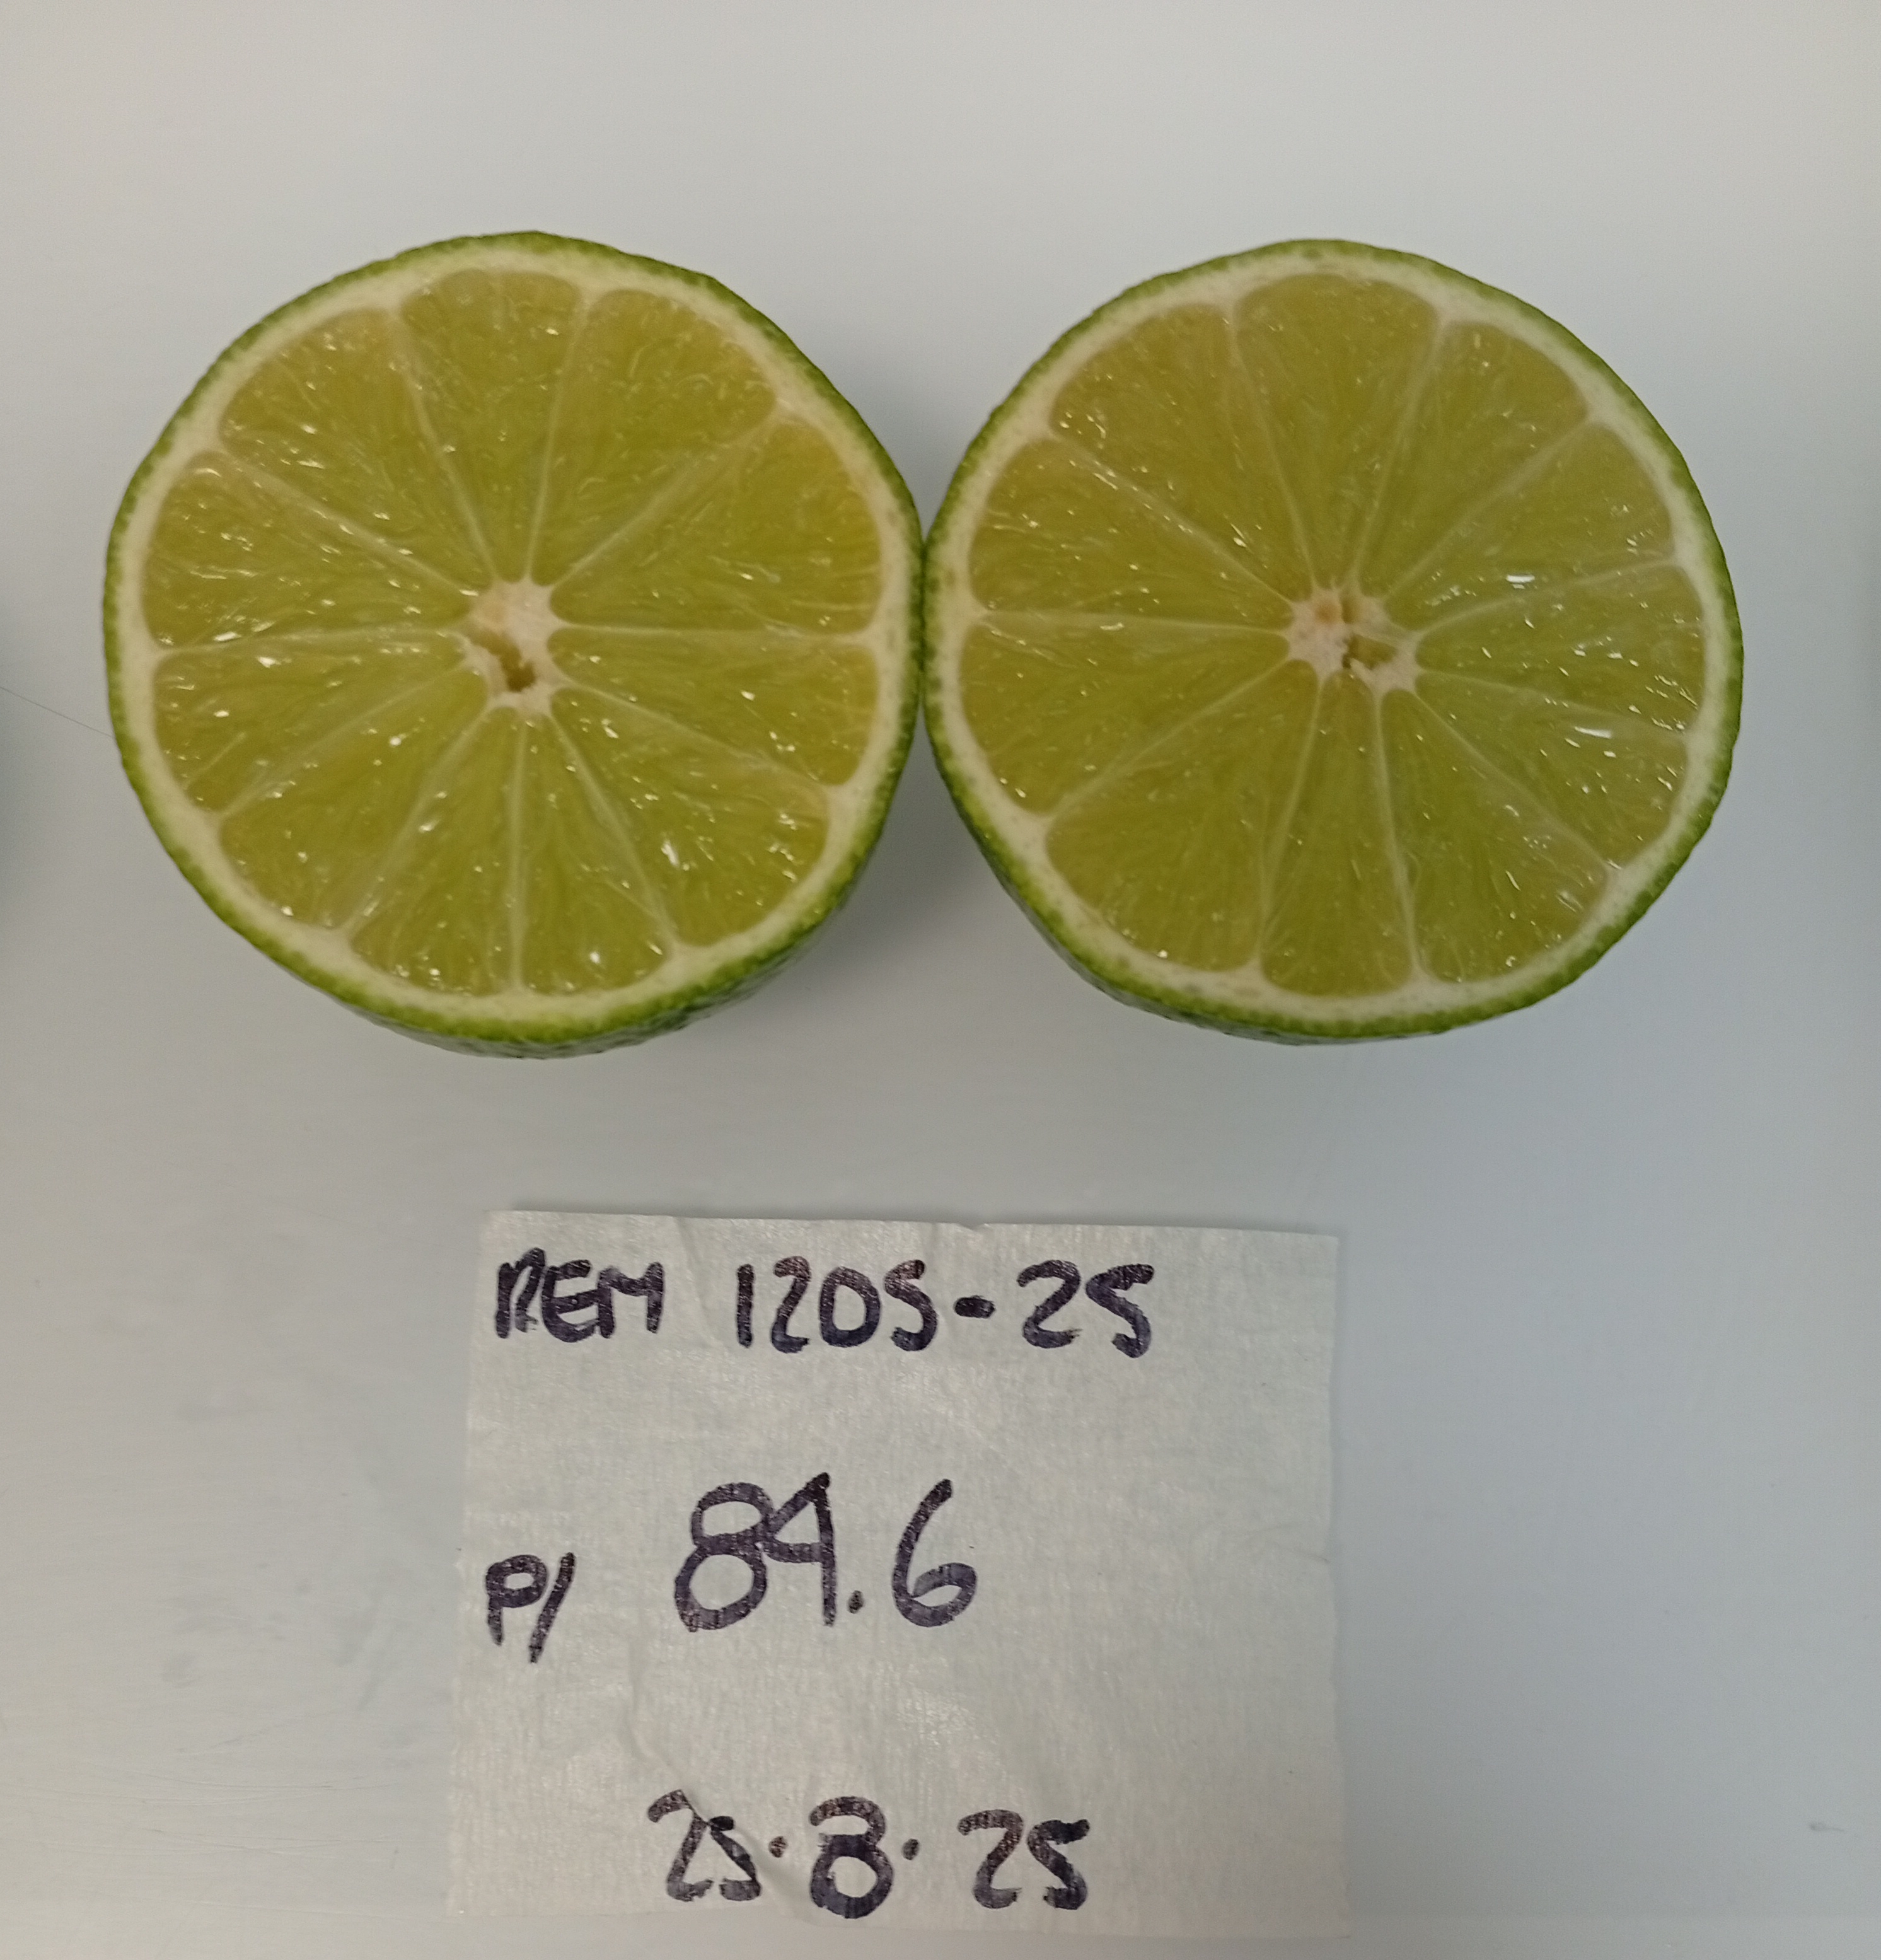 REM 1205-25
P/ 84.6
25.8.25